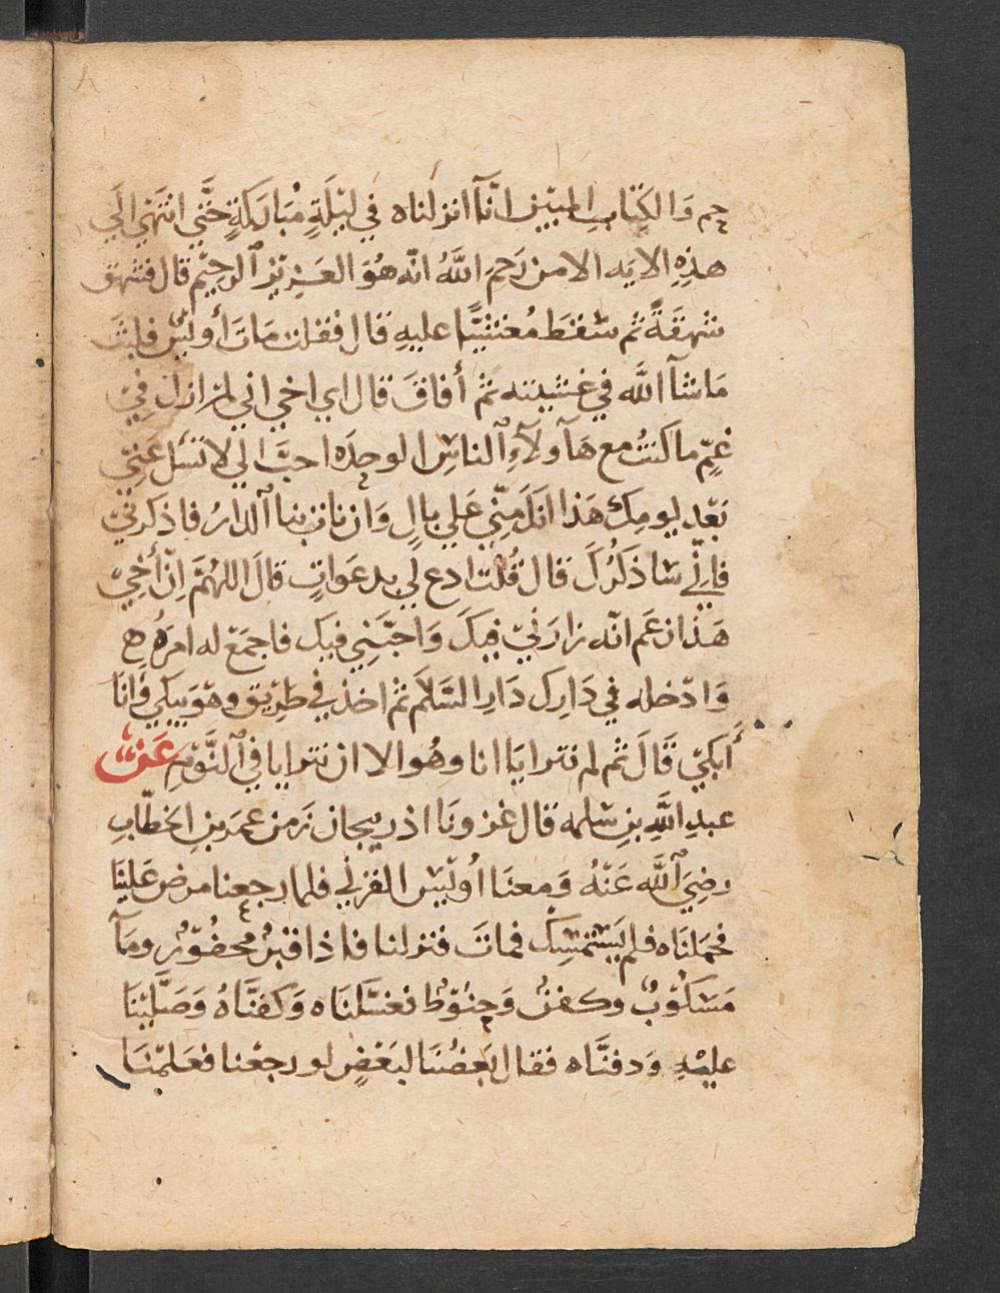 حم وَالكِتَابِ المبين انّآ انزلناه في ليْلَةٍ مُبَارَكَةٍ حَتَّى انتَهَى الَي
هذِهِ الايَه الا من رَحِمَ اللَّهُ انّه هُوَ العَزِيْز الرحِيْم قال فشهق
شهقَةً ثم سَقَطَ مُغشيًّا عليهِ قال فقلت مَاتَ أُوليْس فلبثَ
مَاشآ اللَّه في غشيته ثم أفاقَ قال اي اخي اني لم ازل في
غمٍّ ما كنتُ مع هَآولآءِ الناسِ الوحدَه احبَّ الي لا تسل عَنّي
بَعْد ليومِك هَذا انكَ مِنّي عَلي بالٍ وَان نات بنا الدارُ فاذكرني
فانّي ساذكرُكَ قال قُلت ادع لي بدعَواتٍ قالَ اللهُمَّ اِنّ أخي
هَذا زعَم انّه زارَنيْ فيكَ وَاحبَّنِي فيك فاجمَعْ له امرَهُ
وَادْخله في دَارِك دَارِ السَّلاَم ثم اخذ في طِريق وهوَ يبكي وَانَا
أبكيْ قَالَ ثم لم نترايَا انا وهُو الا ان نترايا في النَّوْمِ عَن
عبدِ اللَّهِ بنِ سَلمه قال غزونَا اذربيجان زَمن عمَر بنِ الخطّابِ
رضِيَ اللَّه عَنْهُ وَمعنَا اُوليْس القرني فلما رجعنا مرض عَليْنَا
فحملنَاه فلم يَسْتَمسِك فماتَ فنزلنا فاذا قبرٌ محفُوْرٌ ومَآ
مَسْكُوْبٌ وكفنٌ وَحنُوْطٌ فغسَّلنَاه وَكفنَّاهُ وَصَلَّيْنَا
عليْهِ وَدفنَّاه فقال بَعضُنَا لبَعْضٍ لو رجعْنا فعَلمْنَا